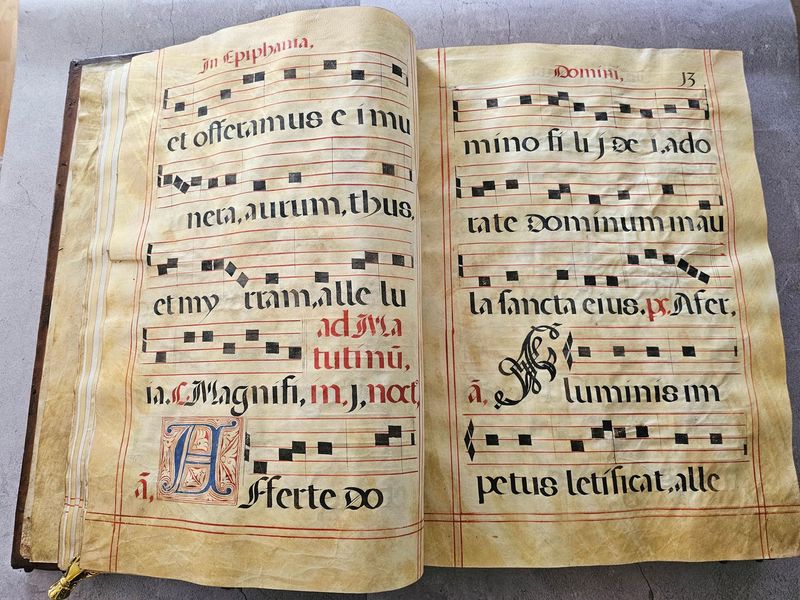 In Epiphania,
et offeramus e i mu
nera, aurum, thus,
et my rram, alle lu
ad Ma
tutinū,
ia. C. Magnifi, in, j, noct,
ā, Afferte Do
Domini, 13
mino fi li j De i, ado
rate Dominum in au
la sancta eius, ps, Afer,
ā, luminis im
petus letificat, alle